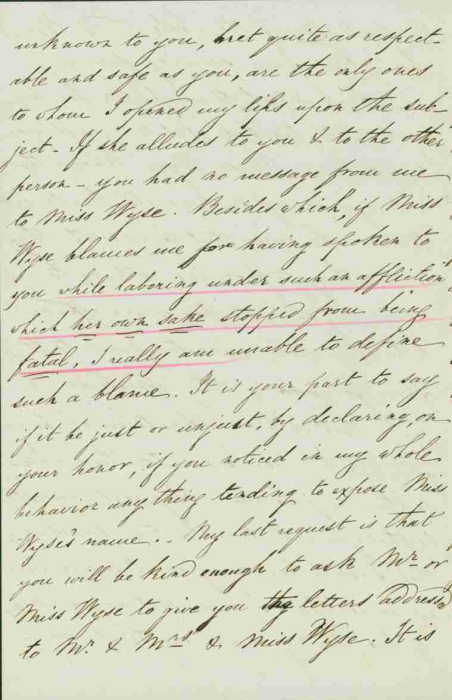 unknown to you, but quite as respect-
able and safe as you, are the only ones
to whom I opened my lips upon the sub-
ject - If she alludes to you & to the other
person - you had no message from me
to Miss Wyse. Besides which, if Miss
Wyse blames me for having spoken to
you while laboring under such an affliction
which her own sake stopped from being
fatal, I really am unable to define
such a blame. It is your part to say
if it be just or unjust, by declaring, on
your honor, if you noticed in my whole
behavior any thing tending to expose Miss
Wyse's name. - My last request is that
you will be kind enough to ask Mr. or
Miss Wyse to give you the letters addressed
to Mr. & Mrs. & Miss Wyse. It is